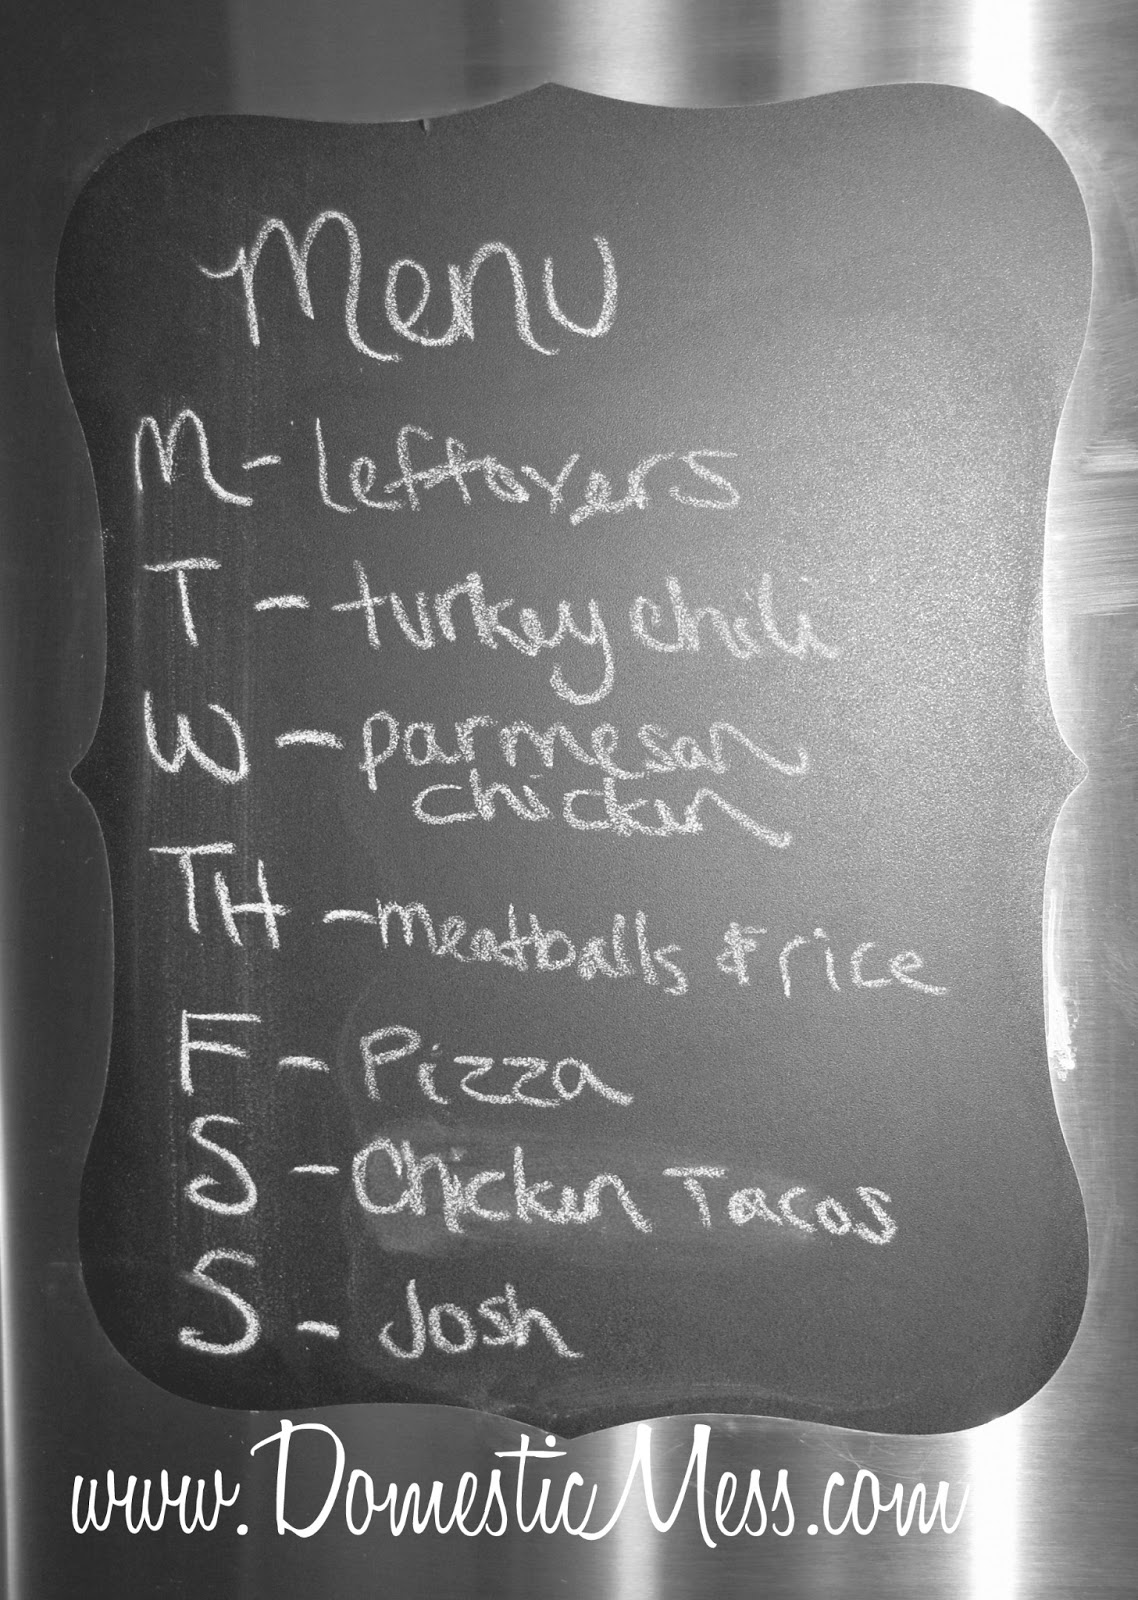 Menu
M - leftovers
T - turkey chili
W - parmesan
chicken
TH - meatballs & rice
F - Pizza
S - Chicken Tacos
S - Josh
www.DomesticMess.com